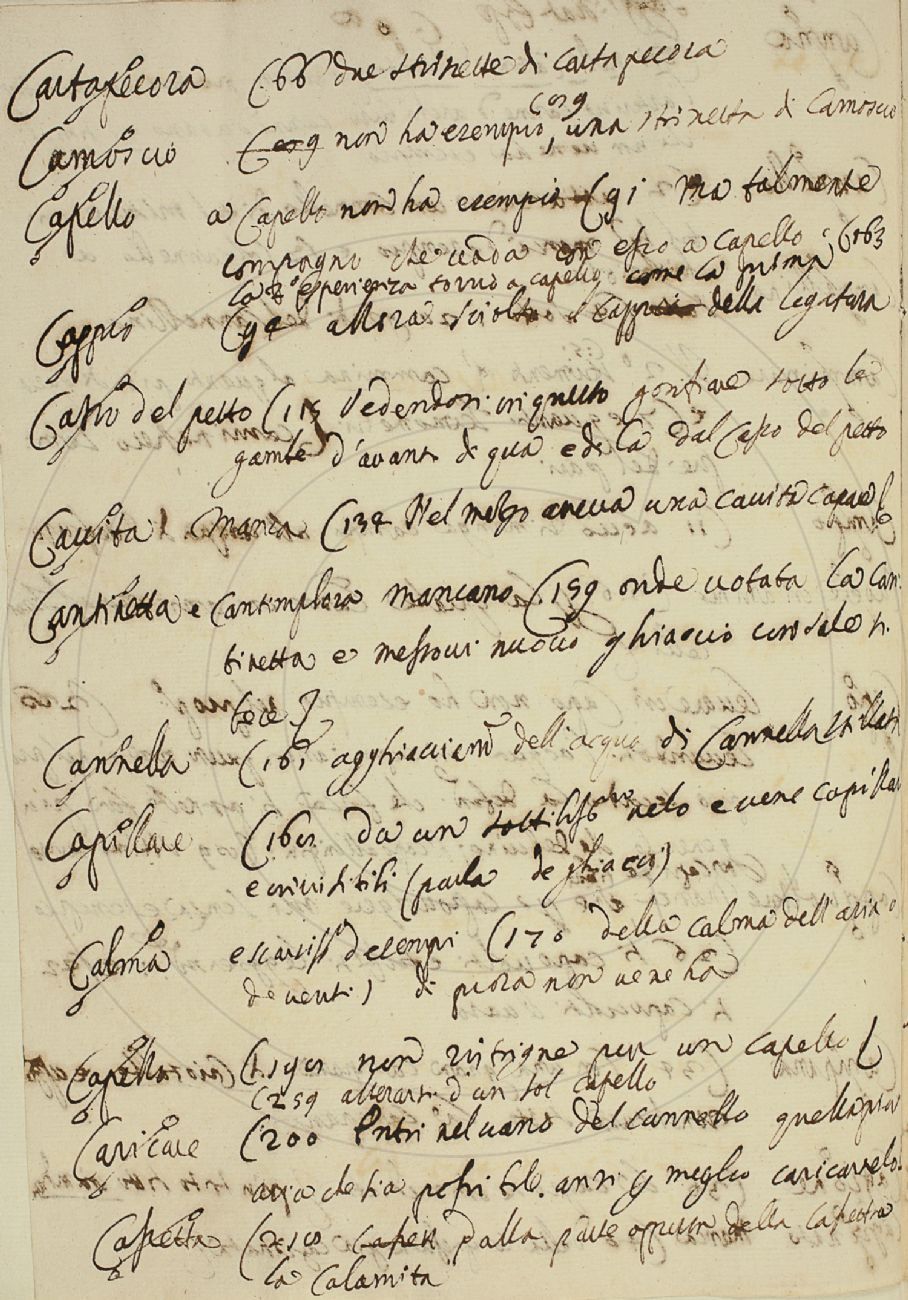 Cartapecora (66 due strisette di cartapecora
Camoscio C̶ 9 non ha esempio, cos 9 una strisetta di Camoscio
Capello a Capello non ha esempio (91 ma talmente
compagno che vada con esso a capello. (163
la 2ª esperienza tornò a capello come la prima
Cappio (94 allora sciolto il cappio della legatura
Casso del petto (115 Vedendosi in questo gonfiare sotto le
gambe d'avanti di qua e di là dal casso del petto
Cavità manca (134 Nel mezzo aveva una cavità capace
Cantinetta e Cantimplora mancano (159 onde votata la can
tinetta e messovi nuovo ghiaccio con sale si
fece
Cannella (161 agghiacciam.to dell'acqua di Cannella stillata
Capillare (160 da un sottiliss.mo velo e vene capillari
e invisibili (parla de ghiacci)
Calma e scarsiss.o d'esempi (170 della calma dell'aria o
de venti) di prosa non ve ne ha
Capello (190 non ristrigne pur un capello
(259 alterarsi d'un sol capello
Caricare (200 Entri nel vano del cannello quella più
aria che sia possibile. anzi p meglio caricarvelo
Cassetta (250 dalla parte opposta della cassetta
la Calamita